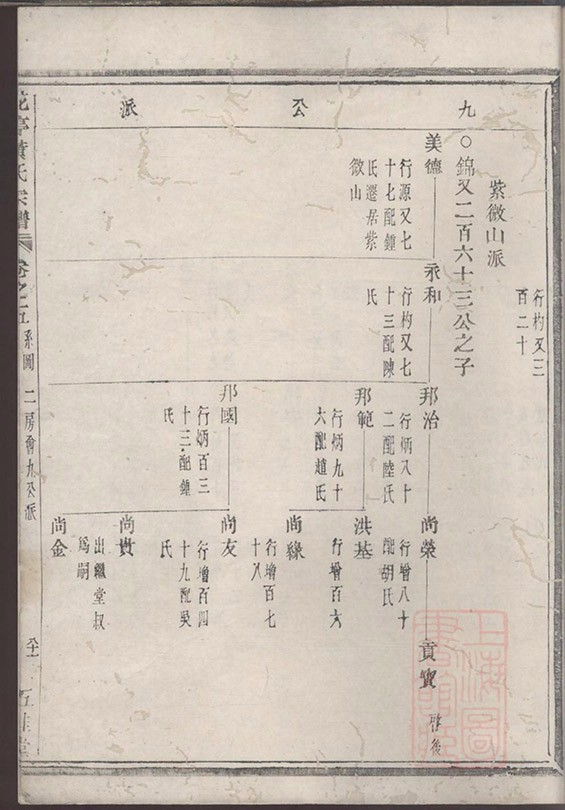 九公派
行杓又三
百二十
紫微山派
○錦又二百六十三公之子
美德
行源又七
十七配鍾
氏遷居紫
微山
永和
行杓又七
十三配陳
氏
邦治
行炳八十
二配陸氏
尚榮
行增八十
配胡氏
貢寶
啓後
邦範
行炳九十
六配趙氏
洪基
行增百六
尚緣
行增百七
十八
邦國
行炳百三
十三配鍾
氏
尚友
行增百四
十九配吳
氏
尚貴
出繼堂叔
爲嗣
尚金
亭黃氏宗譜
卷之五
系圖
二房會九公派
上海圖書館藏